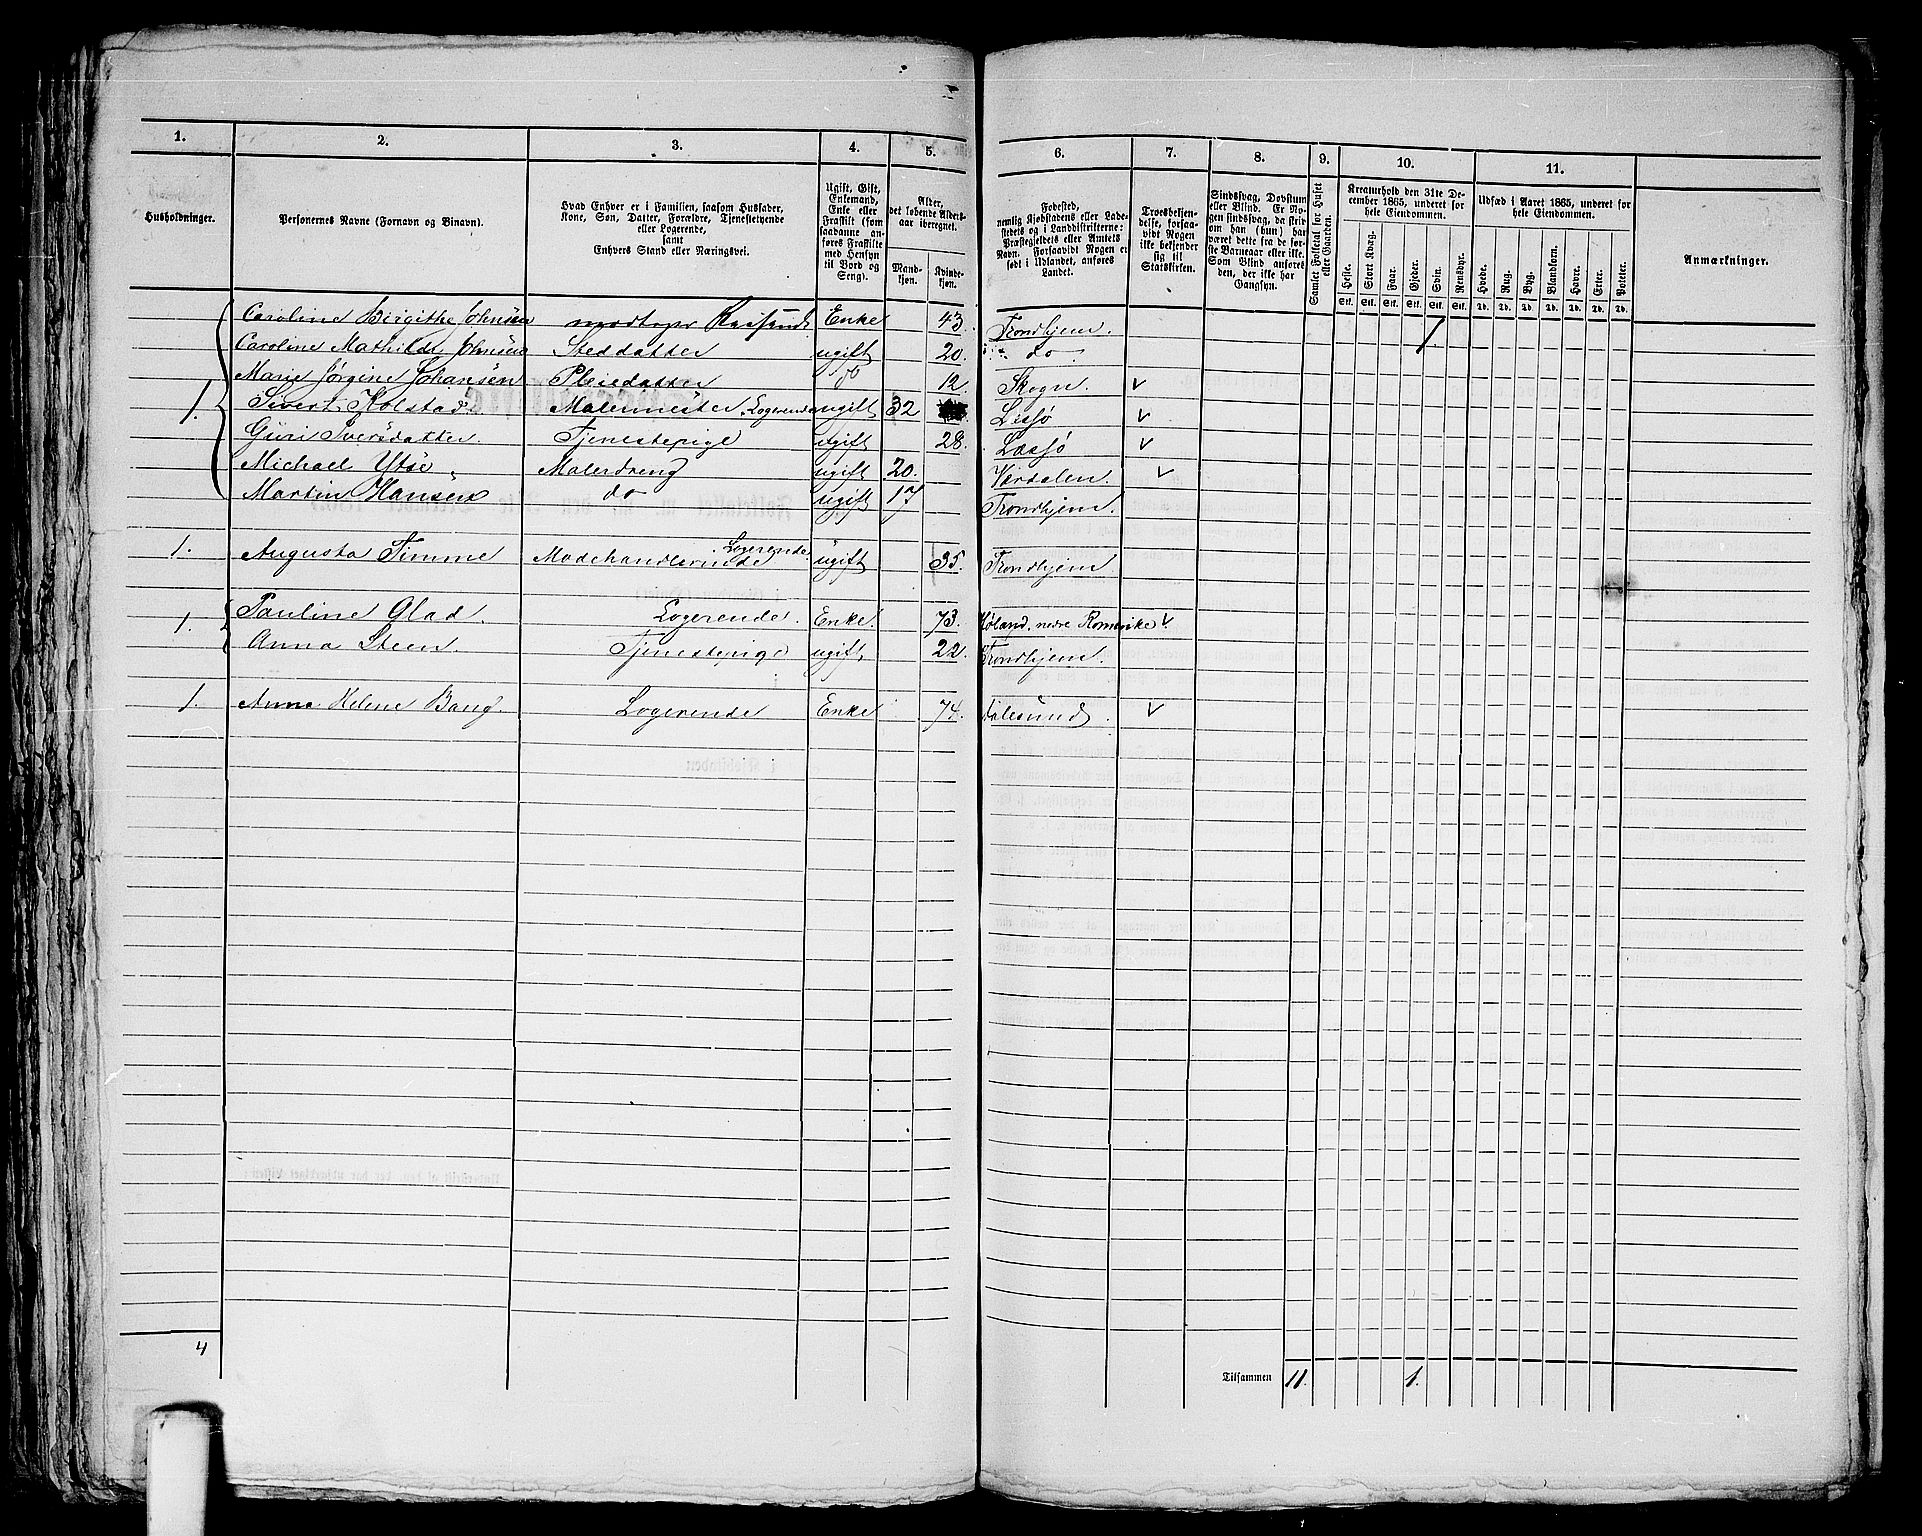 1.
2.
3.
4.
5.
6.
7.
8.
9.
10.
11.
Husholdninger.
Personernes Navne (Fornavn og Binavn).
Hvad Enhver er i Familien, saasom Husfader,
Kone, Søn, Datter, Forældre, Tjenestetyende
eller Logerende,
samt
Enhvers Stand eller Næringsvei.
Ugift, Gift,
Enkemand,
Enke eller
Fraskilt (som
saadanne an-
føres Fraskilte
med Hensyn
til Bord og
Seng).
Alder,
det løbende Alders-
aar iberegnet.
Mand-
kjøn.
Kvinde-
kjøn.
Fødested,
nemlig Kjøbstadens eller Lade-
stedets og i Landdistrikterne:
Præstegjeldets eller Amtets
Navn. Forsaavidt Nogen er
født i Udlandet, anføres
Landet.
Troesbekjen-
delse, forsaa-
vidt Nogen
ikke bekjender
sig til
Statskirken.
Sindssvag, Døvstum
eller Blind. Er No-
gen sindssvag, da skri-
ves om han (hun) har
været dette fra de før-
ste Barneaar eller ikke.
Som Blind anføres
den, der ikke har
Gangsyn.
Samlet Folketal for Huset
eller Gaarden.
Kreaturhold den 31te De-
cember 1865, underet for
hele Eiendommen.
Heste. Stort Kvæg. Faar. Gjeder. Svin. Rensdyr.
Stk. Stk. Stk. Stk. Stk. Stk.
Udsæd i Aaret 1865, underet for
hele Eiendommen.
Hvede. Rug. Byg. Blandkorn. Havre. Erter. Poteter.
Td. Td. Td. Td. Td. Td. Td.
Anmærkninger.
Caroline Birgithe Johnsen Enke 43. Trondhjem. 1.
Caroline Mathilde Johnsen Steddatter ugift 20. do
Marie Jørgine Johansen Pleiedatter do 12. Skogn. v
1. Sivert Kolstad Malermester, Logerende ugift 32 Lesjø v
Guri Iversdatter. Tjenestepige ugift 28. Læssjø v
Michael Ytse. Malerdreng ugift 20. Værdalen. v
Martin Hansen do ugift 17 Trondhjem.
1. Augusta Timme Modehandlerinde Logerende ugift 35. Trondhjem.
1. Pauline Glad. Logerende. Enke. 73. Høland, nedre Romerike v.
Anna Steen Tjenestepige ugift, 22. Trondhjem.
1. Anne Helene Bang. Logerende Enke 74. Aalesund. v
4
Tilsammen 11. 1.